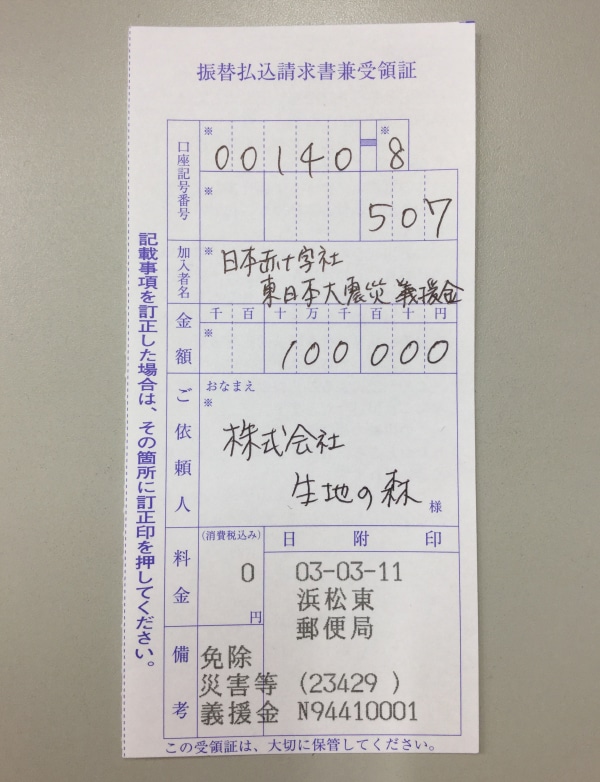 振替払込請求書兼受領証
口座記号番号
※ 00140 ※ 8
※ 507
加入者名
※
日本赤十字社
東日本大震災 義援金
金額
千百十万千百十円
※ 100000
ご依頼人
おなまえ
※
株式会社
生地の森
様
料金
(消費税込み)
0
円
日附印
03-03-11
浜松東
郵便局
備考
免除
災害等 (23429 )
義援金 N94410001
記載事項を訂正した場合は、その箇所に訂正印を押してください。
この受領証は、大切に保管してください。